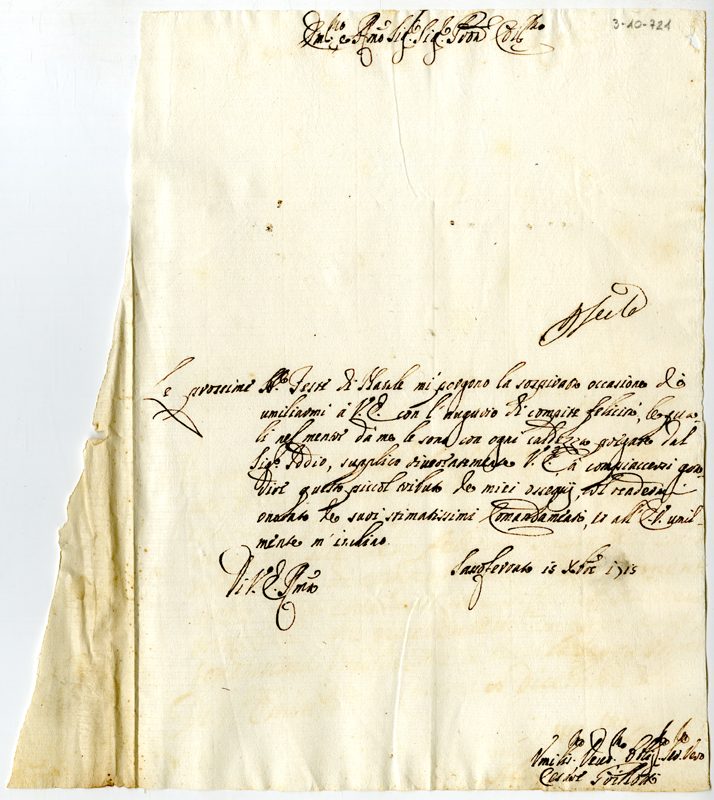 3-10-721
Em.mo e Rmo Sig.r Sig.r Pron Coll.mo
Le prossime SS.e Feste di Natale mi porgono la sospirata occasione di
umiliarmi à V.E. con l'augurio di compite felicità, le qua-
li nel mentre da me le sono con ogni caldezza pregate dal
Sig.r Iddio, supplico riverentemente V.E. à compiacersi gra-
dire questo piccol tributo de miei ossequij, col rendermi
onorato de suoi stimatissimi Comandamenti, et all' E.V. umil-
mente m' inchino.
Di V.E. Rma
15 Xbre 1715
Umiliss.o Devot.mo Obl.mo Ser. Vero
Cesare